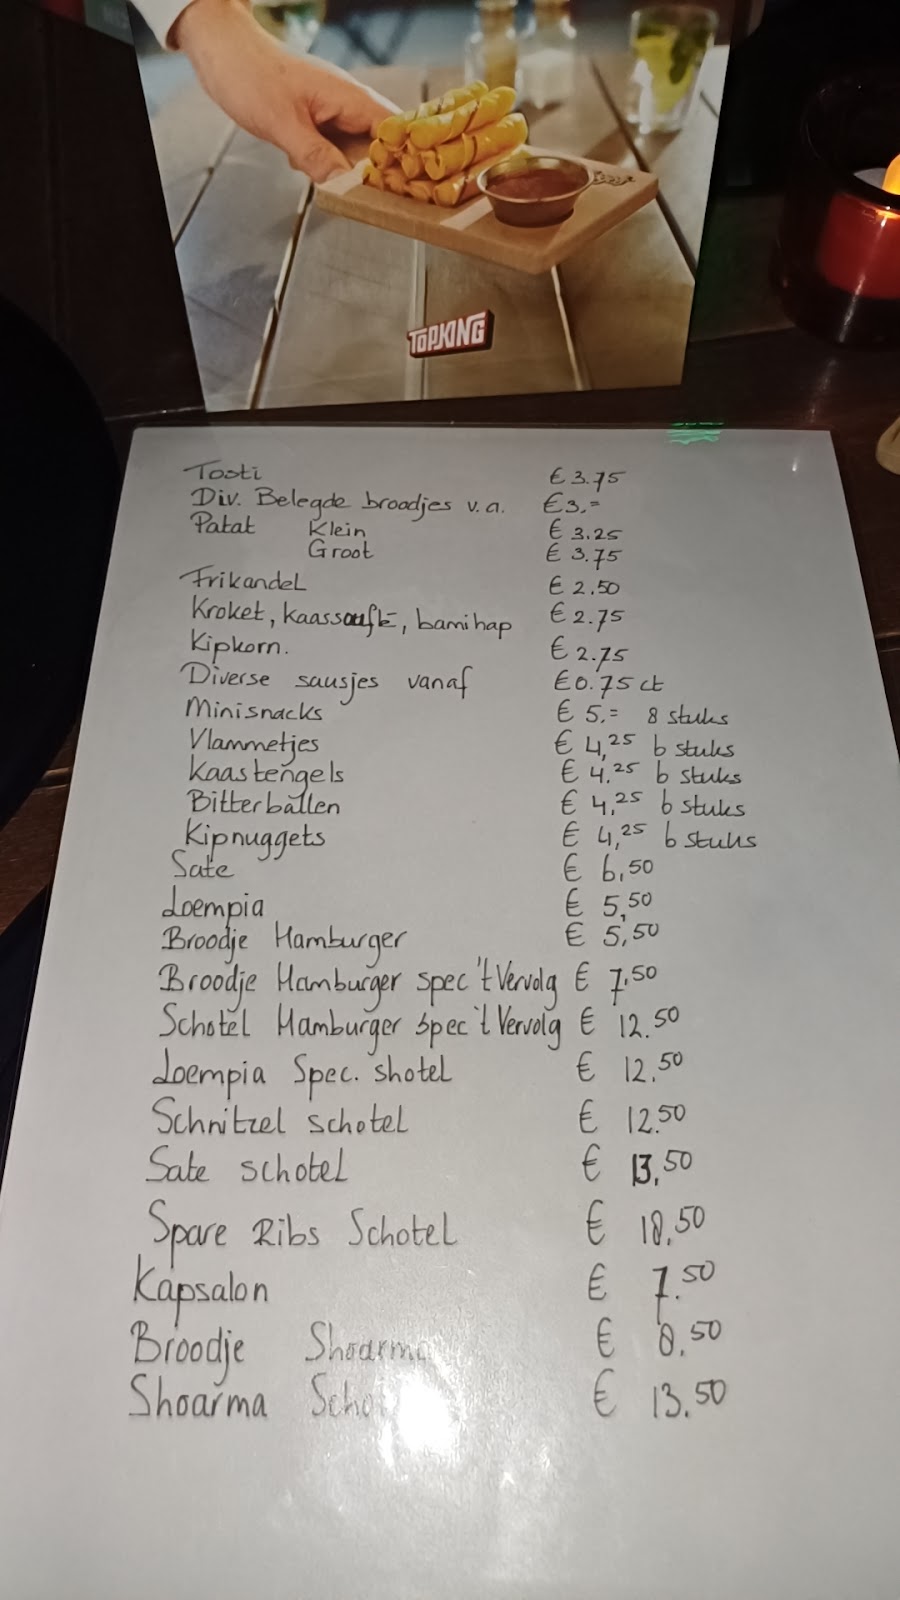 TOPKING
Tosti € 3.75
Div. Belegde broodjes v.a. €3.=
Patat Klein € 3.25
Groot € 3.75
Frikandel € 2.50
Kroket, kaassouflé, bamihap € 2.75
Kipkorn. € 2.75
Diverse sausjes vanaf €0.75 ct
Minisnacks € 5.= 8 stuks
Vlammetjes € 4,25 6 stuks
Kaastengels € 4.25 6 stuks
Bitterballen € 4,25 6 stuks
Kipnuggets € 4,25 6 stuks
Sate € 6,50
Loempia € 5,50
Broodje Hamburger € 5,50
Broodje Hamburger spec 't Vervolg € 7.50
Schotel Hamburger spec 't Vervolg € 12.50
Loempia Spec. shotel € 12.50
Schnitzel schotel € 12.50
Sate schotel € 13,50
Spare Ribs Schotel € 18.50
Kapsalon € 7.50
Broodje Shoarma € 8.50
Shoarma € 13.50